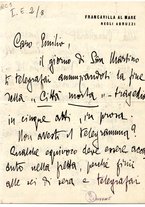 FRANCAVILLA AL MARE
NEGLI ABRUZZI
I. E. 2/8
Caro Emilio,
il giorno di San Martino
ti telegrafai annunziandoti la fine
della "Città morta" – tragedia
in cinque atti, in prosa.
Non avesti il telegramma?
Qualche equivoco deve essere acca-
duto nella fretta, perché finii
alle sei di sera e telegrafai